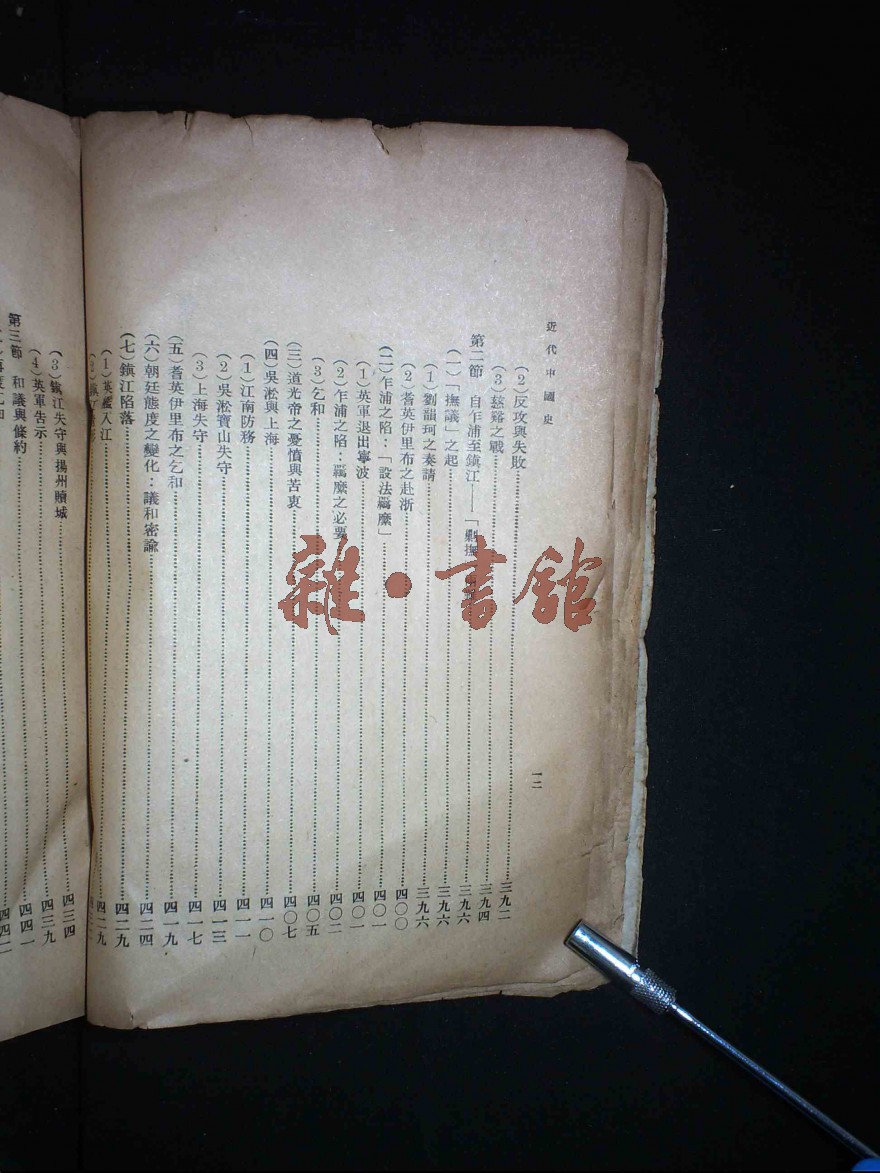 近代中國史
一二
（2）反攻與失敗……三九二
（3）慈谿之戰……三九四
第二節　自乍浦至鎮江——「剿撫……三九六
（一）「撫議」之起……三九六
（1）劉韻珂之奏請……三九六
（2）耆英伊里布之赴浙……四〇〇
（二）乍浦之陷：「設法羈縻」……四〇一
（1）英軍退出寧波……四〇一
（2）乍浦之陷：羈縻之必要……四〇二
（3）乞和……四〇五
（三）道光帝之憂憤與苦衷……四〇七
（四）吳淞與上海……四一〇
（1）江南防務……四一一
（2）吳淞寶山失守……四一三
（3）上海失守……四一七
（五）耆英伊里布之乞和……四一九
（六）朝廷態度之變化：議和密諭……四二四
（七）鎮江陷落……四二九
（1）英艦入江……四二九
（3）鎮江失守與揚州贖城……四三四
（4）英軍告示……四三九
第三節　和議與條約……四四一
雜·書館